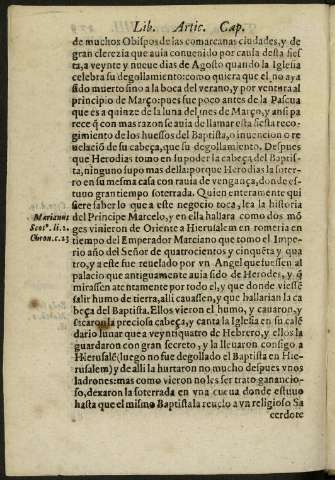 Lib. Artic. Cap.
de muchos Obispos de las comarcanas ciudades, y de
gran clerezia que auia conuenido por causa desta fies
ta, a veynte y nueue dias de Agosto quando la Iglesia
celebra su degollamiento: como quiera que el no aya
sido muerto sino a la boca del verano, y por ventura al
principio de Março: pues fue poco antes de la Pascua
que es a quinze de la luna del mes de Março, y ansi pa
rece q̃ con mas razon se auia de llamar esta fiesta reco-
gimiento de los huessos del Baptista, o inuencion o re
uelació de su cabeça, que su degollamiento. Despues
que Herodias tomo en su poder la cabeça del Baptis-
ta, ninguno supo mas della: porque Herodias la soter-
ro en su mesma casa con rauia de vengança, donde es-
tuuo gran tiempo soterrada. Quien enteramente qui
siere saber lo que a este negocio toca, lea la historia
del Principe Marcelo, y en ella hallara como dos mõ
ges vinieron de Oriente a Hierusalem en romeria en
tiempo del Emperador Marciano que tomo el Impe-
rio año del Señor de quatrocientos y cinquẽta y qua
tro, y a este fue reuelado por vn Angel que fuessen al
palacio que antiguamente auia sido de Herodes, y q̃
mirassen atentamente por todo el, y que donde viessẽ
salir humo de tierra, alli cauassen, y que hallarian la ca
beça del Baptista. Ellos vieron el humo, y cauaron, y
sacaron la preciosa cabeça, y canta la Iglesia en su calẽ
dario lunar que a veyntiquatro de Hebrero, y ellos la
guardaron con gran secreto, y la lleuaron consigo a
Hierusalẽ (luego no fue degollado el Baptista en Hie-
rusalem) y de alli la hurtaron no mucho despues vnos
ladrones: mas como vieron no les ser tratoganancio-
so, dexaron la soterrada en vna cueua donde estuuo
hasta que el mismo Baptista la reuelo a vn religioso Sa
cerdote
Marianus
Scot9. li. 2.
Chron. c. 23